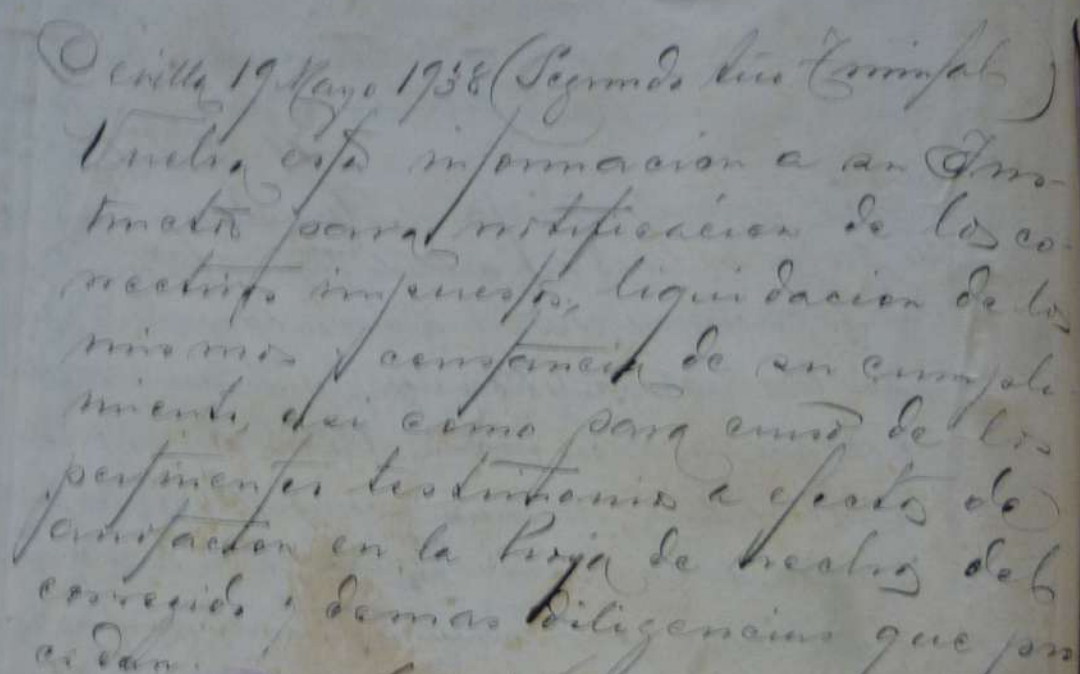 Sevilla 19 Mayo 1938 (Segundo Año Triunfal)
Vuelva esta informacion a su Ins-
tructor para notificacion de los co-
rrectivos impuestos, liquidacion de los
mismos y constancia de su cumpli-
miento, asi como para curso de los
pertinentes testimonios a efectos de
anotacion en la Hoja de hechos del
corregido y demas diligencias que pro
cedan.